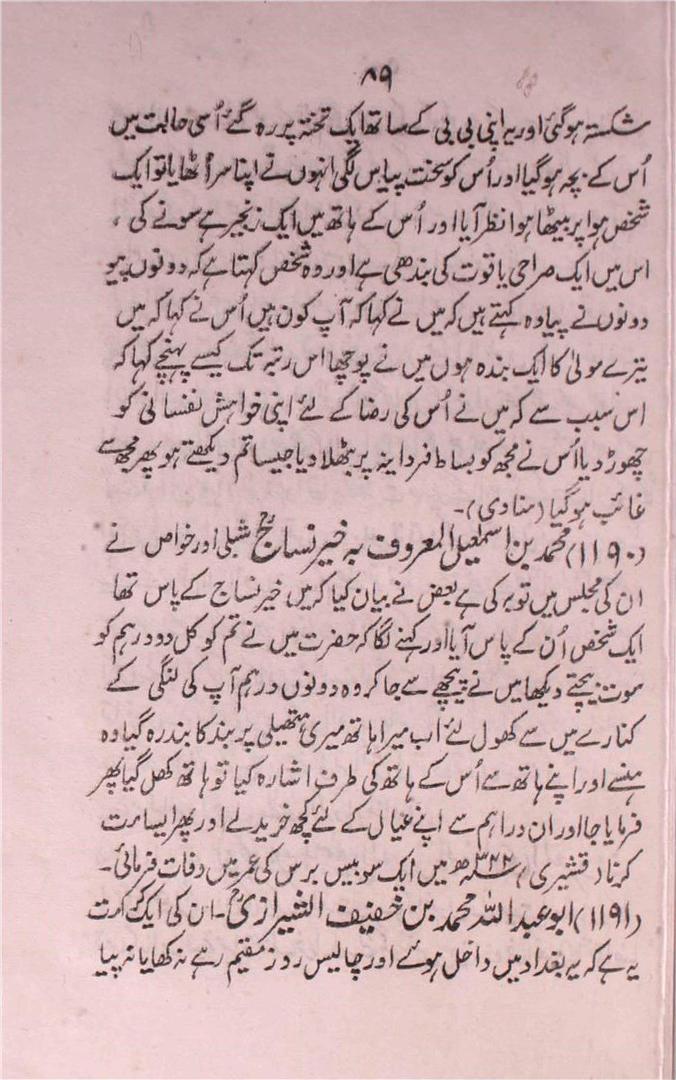 ۸۹
شکستہ ہوگئی اور یہ اپنی بی بی کے ساتھ ایک تختہ پر رہ گئے اُسی حالت میں
اُس کے بچہ ہوگیا اور اُس کو سخت پیاس لگی انہوں نے اپنا سر اُٹھایا تو ایک
شخص ہوا پر بیٹھا ہوا نظر آیا اور اُس کے ہاتھ میں ایک زنجیر ہے سونے کی ،
اس میں ایک صراحی یاقوت کی بندھی ہے اور وہ شخص کہتا ہے کہ دونوں پیو
دونوں نے پیا وہ کہتے ہیں کہ میں نے کہا کہ آپ کون ہیں اُس نے کہا کہ میں
تیرے مولیٰ کا ایک بندہ ہوں میں نے پوچھا اس رتبہ تک کیسے پہنچے کہا کہ
اس سبب سے کہ میں نے اُس کی رضا کے لئے اپنی خواہش نفسانی کو
چھوڑ دیا اُس نے مجھ کو بساط فردانیہ پر بٹھلا دیا جیسا تم دیکھتے ہو پھر مجھ سے
غائب ہوگیا (مناوی)۔
(۱۱۹۰) محمد بن اسمٰعیل المعروف بہ خیر نساجؒ شبلی اور خواص نے
ان کی مجلس میں توبہ کی ہے بعض نے بیان کیا کہ میں خیر نساج کے پاس تھا
ایک شخص اُن کے پاس آیا اور کہنے لگا کہ حضرت میں نے تم کو کل دو درہم کو
سوت بیچتے دیکھا میں نے پیچھے سے جا کر وہ دونوں درہم آپ کی لنگی کے
کنارے میں سے کھول لئے اب میرا ہاتھ میری ہتھیلی پر بند کا بند رہ گیا وہ
ہنسے اور اپنے ہاتھ سے اُس کے ہاتھ کی طرف اشارہ کیا تو ہاتھ کھل گیا پھر
فرمایا جا اور ان دراہم سے اپنے عیال کے لئے کچھ خرید لے اور پھر ایسا مت
کرنا (قشیری) ۳۲۲ھ میں ایک سو بیس برس کی عمر میں وفات فرمائی۔
(۱۱۹۱) ابو عبداللہ محمد بن خفیف الشیرازیؒ۔ ان کی ایک کرامت
یہ ہے کہ یہ بغداد میں داخل ہوئے اور چالیس روز مقیم رہے نہ کھایا نہ پیا